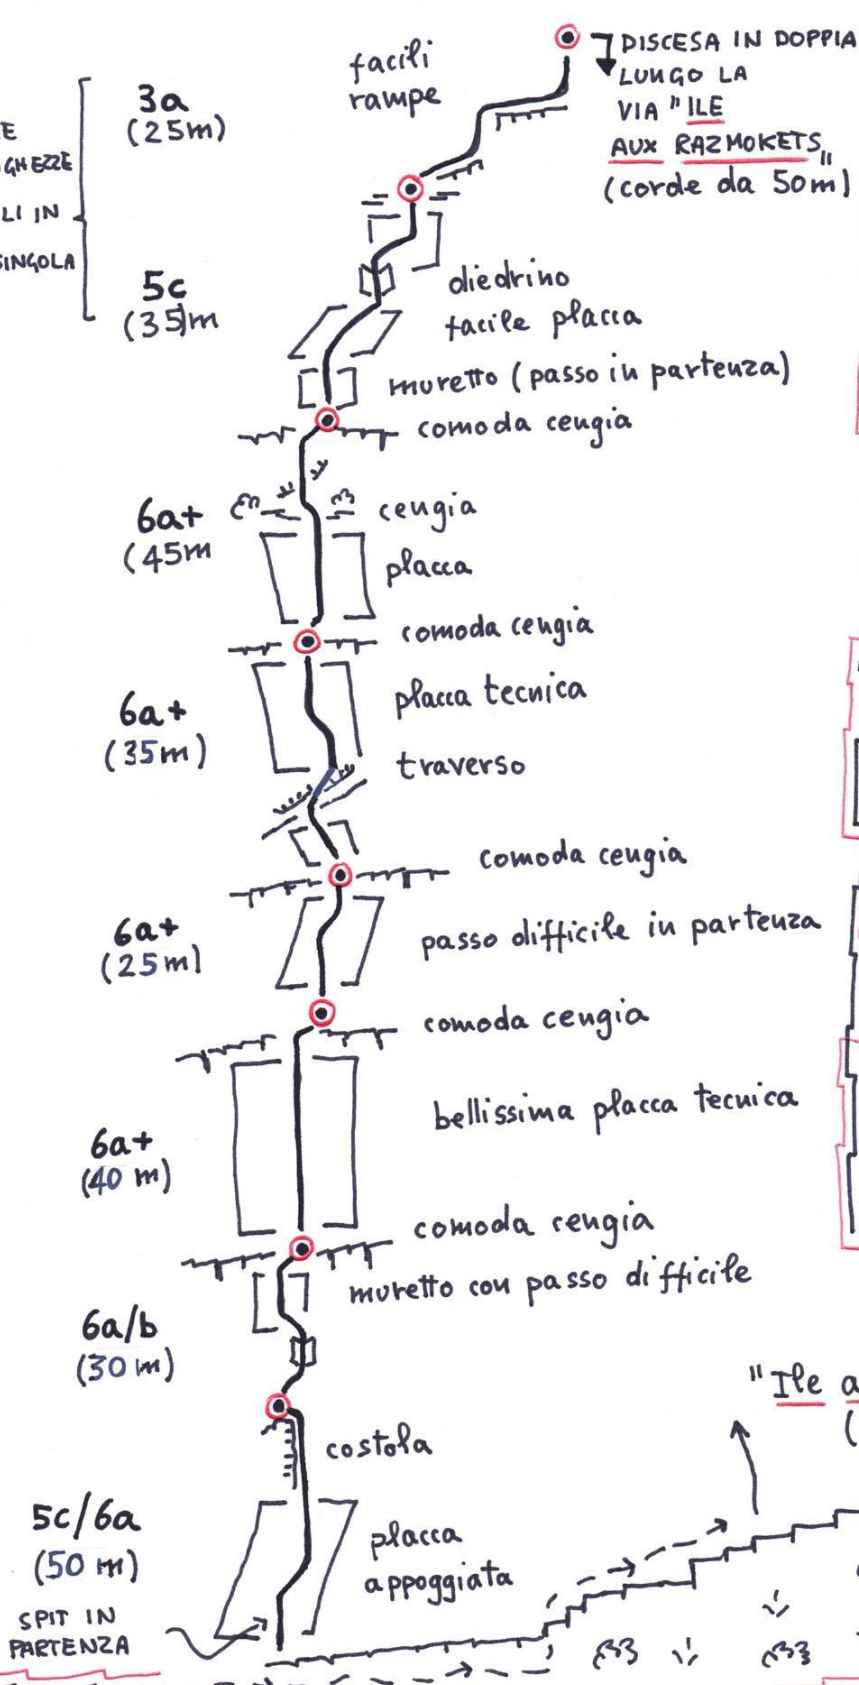 facili
rampe
DISCESA IN DOPPIA
LUNGO LA
VIA "ILE
AUX RAZMOKETS"
(corde da 50m)
3a
(25m)
LI IN
SINGOLA
5c
(35)m
diedrino
facile placca
muretto (passo in partenza)
comoda cengia
6a+
(45m
cengia
placca
comoda cengia
6a+
(35m)
placca tecnica
traverso
comoda cengia
6a+
(25m)
passo difficile in partenza
comoda cengia
6a+
(40 m)
bellissima placca tecnica
comoda cengia
muretto con passo difficile
6a/b
(30 m)
"Ile a
(
costola
5c/6a
(50 m)
placca
appoggiata
SPIT IN
PARTENZA